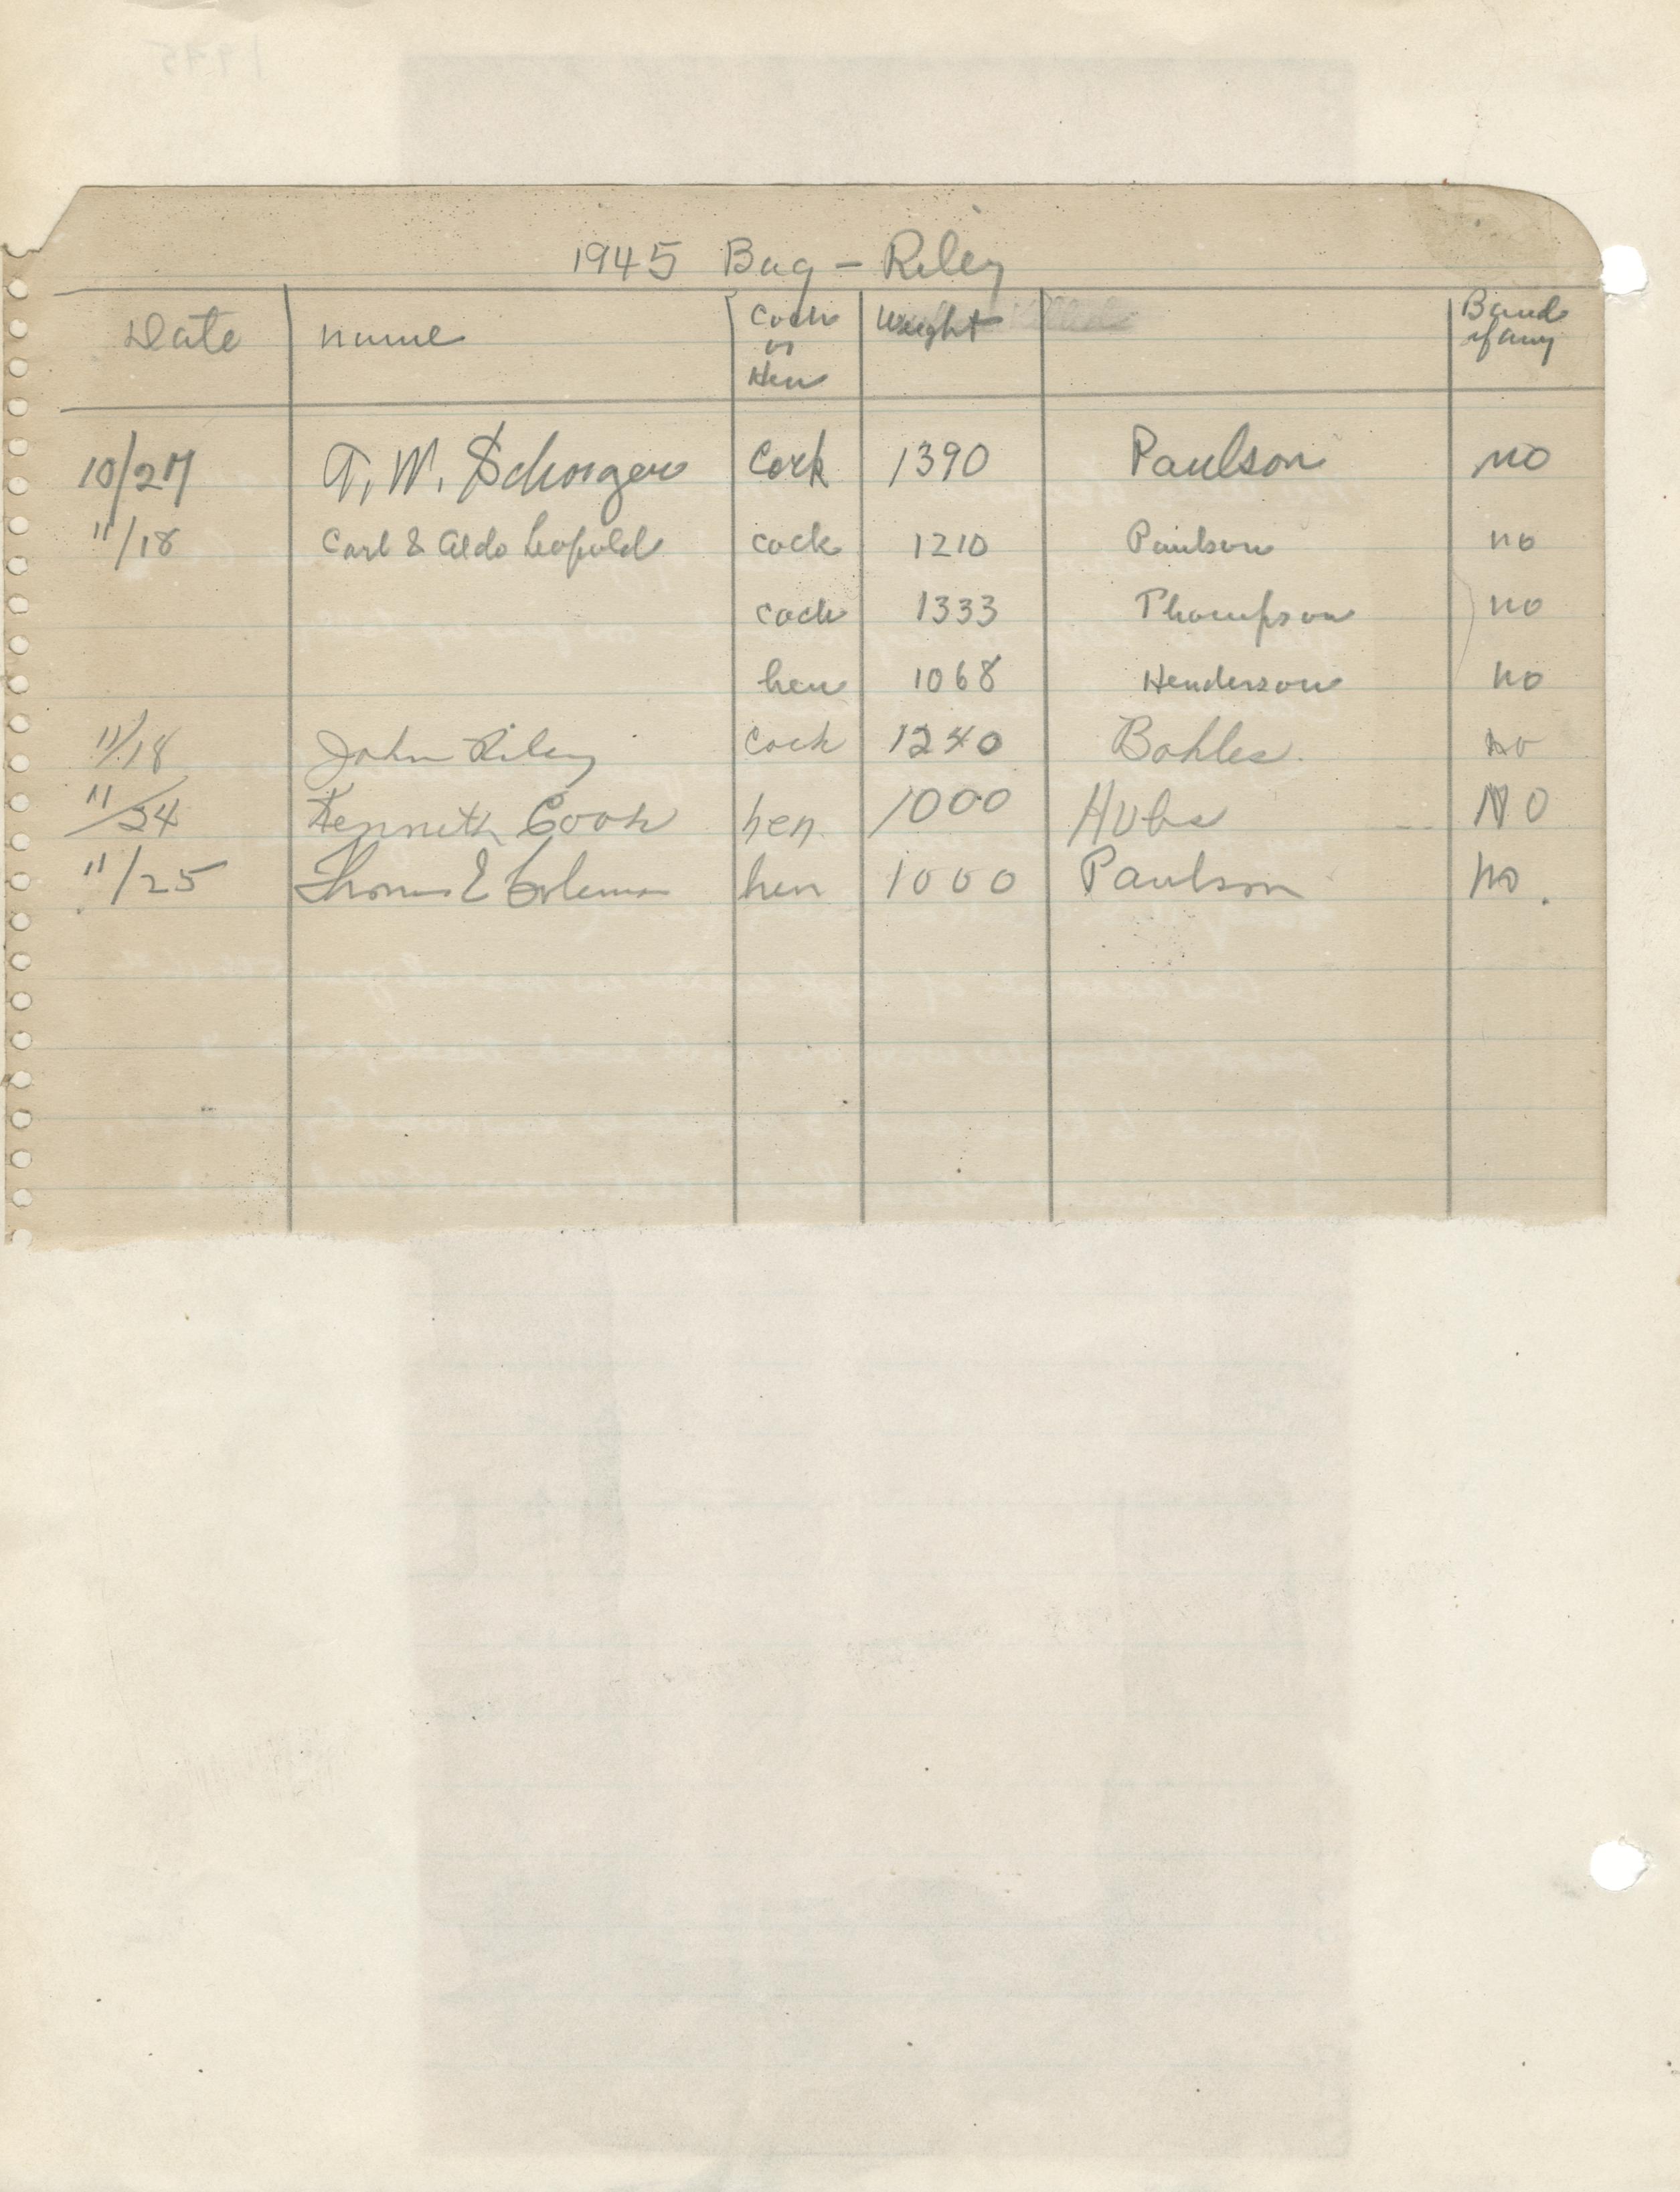 1945 Bag - Riley
Date name Cock or Hen Weight Band if any
10/27 A. W. Schorger Cock 1390 Paulson no
11/18 Carl & Aldo Leopold cock 1210 Paulson no
cock 1333 Thompson no
hen 1068 Henderson no
11/18 John Riley Cock 1240 Bohles no
11/24 Kenneth Cook hen 1000 Hubs NO
11/25 Thomas E Coleman hen 1000 Paulson no.